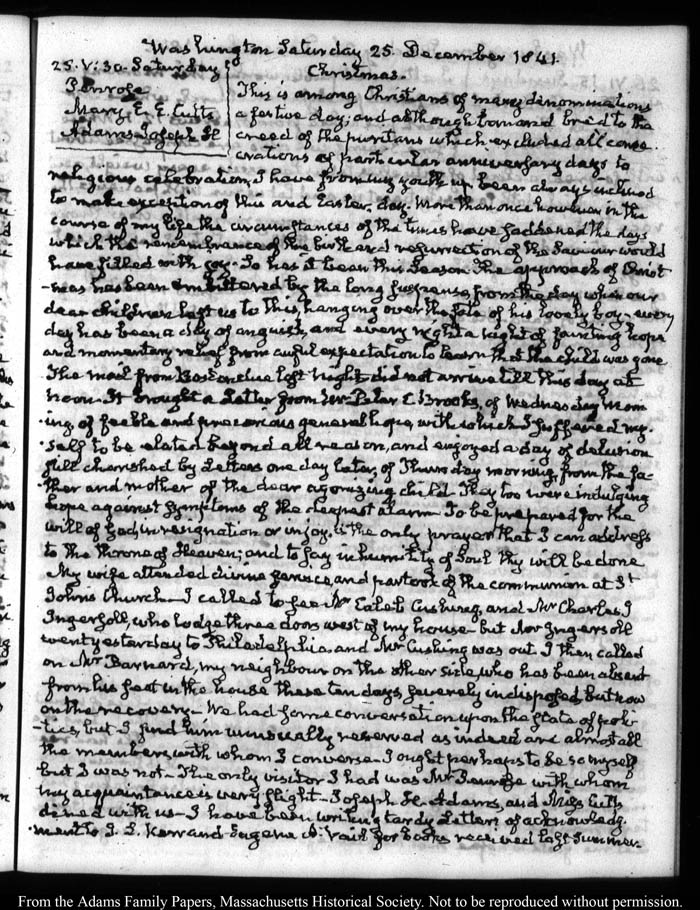 Washington Saturday 25. December 1841.
25. V:30. Saturday
Christmas.
Penrose
Mary. E. E. Cutts
Adams. Joseph H
This is among Christians of many denominations
a festive day; and although born and bred to the
creed of the puritans which excluded all conse-
crations of particular anniversary days to
religious celebration, I have from my youth up been always inclined
to make exception of this and Easter day. More than once however in the
course of my life the circumstances of the times have saddened the days
which the remembrance of the birth and resurrection of the Saviour would
have filled with joy. So has it been this Season. The approach of Christ-
-mas has been embittered by the long suspense, from the day when our
dear children left us to this, hanging over the fate of his lovely boy - every
day has been a day of anguish, and every night a night of fainting hope
and momentary relief from awful expectation to learn that the child was gone
The mail from Boston due last night did not arrive till this day at
noon. It brought a Letter from Mr Peter C Brooks, of Wednesday Morn-
ing of feeble and precarious general hope, with which I suffered my-
self to be elated beyond all reason, and enjoyed a day of delusion
still cherished by Letters one day later, of Thursday morning, from the fa-
ther and mother of the dear agonizing child. They too were indulging
hope against symptoms of the deepest alarm. To be prepared for the
will of God, in resignation or in joy, is the only prayer that I can address
to the throne of Heaven; and to say in humility of Soul thy will be done
My wife attended divine service, and partook of the communion at St
Johns Church - I called to see Mr Caleb Cushing, and Mr Charles J
Ingersoll, who lodge three doors west of my house - but Mr Ingersoll
went yesterday to Philadelphia and Mr Cushing was out. I then called
on Mr Barnard, my neighbour on the other side, who has been absent
from his seat in the house these ten days, severely indisposed, but now
on the recovery - We had some conversation upon the state of poli-
-tics, but I find him unusually reserved as indeed are almost all
the members, with whom I converse - I ought perhaps to be so myself
but I was not - The only visitor I had was Mr Penrose with whom
my acquaintance is very slight - Joseph H. Adams, and Miss Cutts
dined with us - I have been writing tardy Letters of acknowledg-
ment to J. L. Kerr and Eugene A. Vail for books received last Summer.
From the Adams Family Papers, Massachusetts Historical Society. Not to be reproduced without permission.